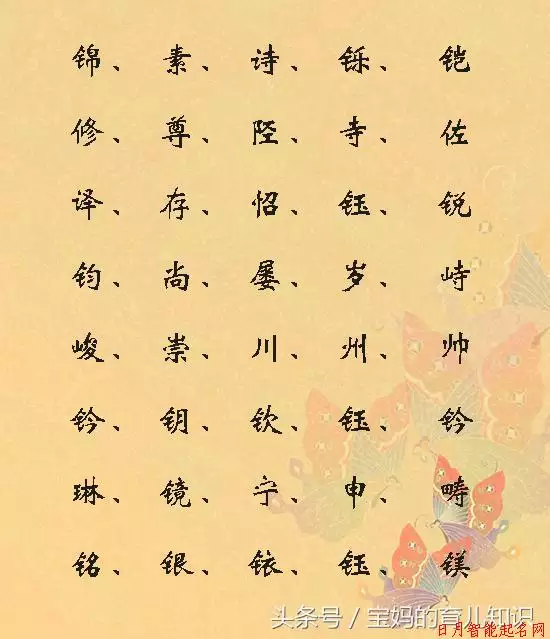 锦、素、诗、铄、铠
修、尊、陉、寺、佐
译、存、怊、钰、锐
钧、尚、屡、岁、峙
峻、崇、川、州、帅
钤、钥、钦、钰、钤
琳、镜、宁、申、畴
铭、银、铱、钰、镁
头条号/宝妈的育儿知识
日月智能起名网